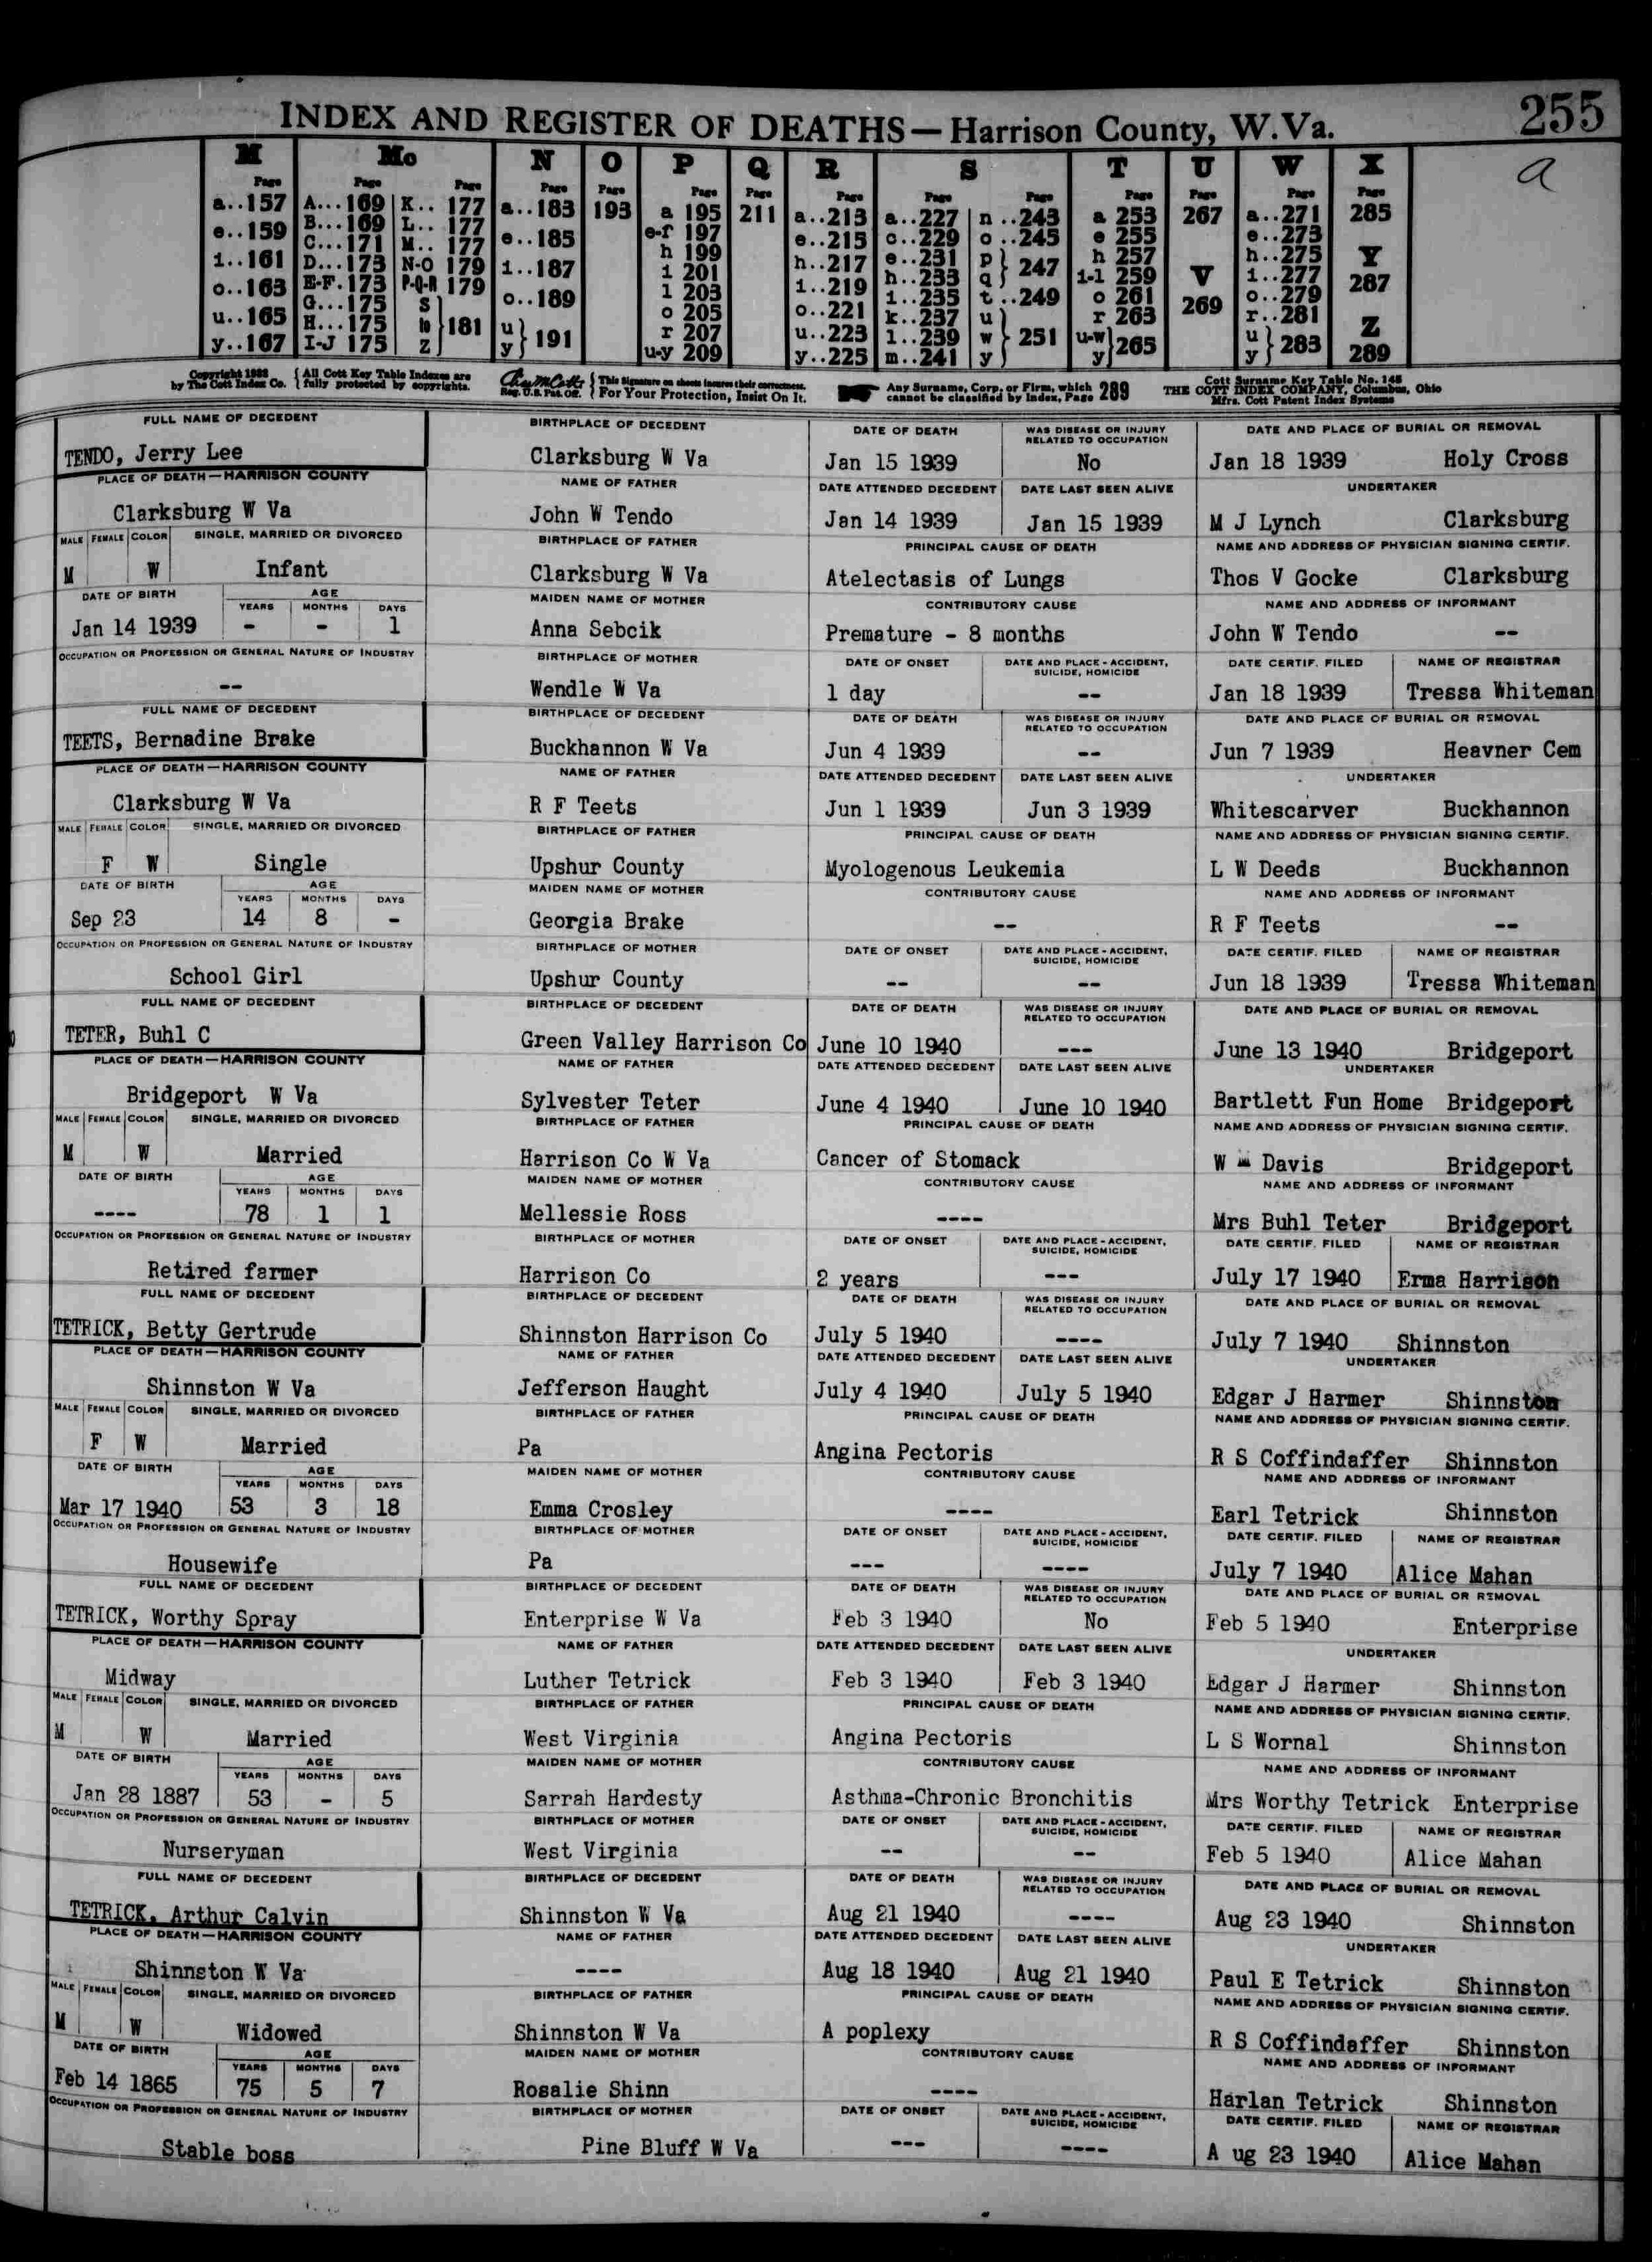 INDEX AND REGISTER OF DEATHS—Harrison County, W.Va. 255
a
M Mo N O P Q R S T U W X
Page Page Page Page Page Page Page Page Page Page Page Page Page Page
a..157 A...169 K.. 177 a..183 193 a 195 211 a..213 a..227 n ..243 a 253 267 a..271 285
e..159 B...169 L.. 177 e..185 e-f 197 e..215 c..229 o ..245 e 255 e..273
i..161 C...171 M.. 177 i..187 h 199 h..217 e..231 p} 247 h 257 V h..275 Y
o..163 D...173 N-O 179 o..189 i 201 i..219 h..233 q i-l 259 269 i..277 287
u..165 E-F.173 P-Q-R 179 u} 191 l 203 o..221 i..235 t ..249 o 261 o..279 Z
y..167 G...175 S y o 205 u..223 k..237 u r 263 r..281 289
H...175 to} 181 r 207 y..225 l..239 w} 251 u-w} 265 u} 283
I-J 175 Z u-y 209 m..241 y y y
Copyright by The Cott Index Co. { All Cott Key Table Indexes are fully protected by copyrights. Reg. U.S. Pat. Off. { This Signature on sheets insures their correctness. For Your Protection, Insist On It. Any Surname, Corp. or Firm, which cannot be classified by Index, Page 289 Cott Surname Key Table No. 145 THE COTT INDEX COMPANY, Columbus, Ohio Mfrs. Cott Patent Index Systems
FULL NAME OF DECEDENT BIRTHPLACE OF DECEDENT DATE OF DEATH WAS DISEASE OR INJURY RELATED TO OCCUPATION DATE AND PLACE OF BURIAL OR REMOVAL
TENDO, Jerry Lee Clarksburg W Va Jan 15 1939 No Jan 18 1939 Holy Cross
PLACE OF DEATH—HARRISON COUNTY NAME OF FATHER DATE ATTENDED DECEDENT DATE LAST SEEN ALIVE UNDERTAKER
Clarksburg W Va John W Tendo Jan 14 1939 Jan 15 1939 M J Lynch Clarksburg
MALE FEMALE COLOR SINGLE, MARRIED OR DIVORCED BIRTHPLACE OF FATHER PRINCIPAL CAUSE OF DEATH NAME AND ADDRESS OF PHYSICIAN SIGNING CERTIF.
M W Infant Clarksburg W Va Atelectasis of Lungs Thos V Gocke Clarksburg
DATE OF BIRTH AGE YEARS MONTHS DAYS MAIDEN NAME OF MOTHER CONTRIBUTORY CAUSE NAME AND ADDRESS OF INFORMANT
Jan 14 1939 - - 1 Anna Sebcik Premature - 8 months John W Tendo --
OCCUPATION OR PROFESSION OR GENERAL NATURE OF INDUSTRY BIRTHPLACE OF MOTHER DATE OF ONSET DATE AND PLACE - ACCIDENT, SUICIDE, HOMICIDE DATE CERTIF. FILED NAME OF REGISTRAR
-- Wendle W Va 1 day -- Jan 18 1939 Tressa Whiteman
FULL NAME OF DECEDENT BIRTHPLACE OF DECEDENT DATE OF DEATH WAS DISEASE OR INJURY RELATED TO OCCUPATION DATE AND PLACE OF BURIAL OR REMOVAL
TEETS, Bernadine Brake Buckhannon W Va Jun 4 1939 -- Jun 7 1939 Heavner Cem
PLACE OF DEATH—HARRISON COUNTY NAME OF FATHER DATE ATTENDED DECEDENT DATE LAST SEEN ALIVE UNDERTAKER
Clarksburg W Va R F Teets Jun 1 1939 Jun 3 1939 Whitescarver Buckhannon
MALE FEMALE COLOR SINGLE, MARRIED OR DIVORCED BIRTHPLACE OF FATHER PRINCIPAL CAUSE OF DEATH NAME AND ADDRESS OF PHYSICIAN SIGNING CERTIF.
F W Single Upshur County Myologenous Leukemia L W Deeds Buckhannon
DATE OF BIRTH AGE YEARS MONTHS DAYS MAIDEN NAME OF MOTHER CONTRIBUTORY CAUSE NAME AND ADDRESS OF INFORMANT
Sep 23 14 8 - Georgia Brake -- R F Teets --
OCCUPATION OR PROFESSION OR GENERAL NATURE OF INDUSTRY BIRTHPLACE OF MOTHER DATE OF ONSET DATE AND PLACE - ACCIDENT, SUICIDE, HOMICIDE DATE CERTIF. FILED NAME OF REGISTRAR
School Girl Upshur County -- -- Jun 18 1939 Tressa Whiteman
FULL NAME OF DECEDENT BIRTHPLACE OF DECEDENT DATE OF DEATH WAS DISEASE OR INJURY RELATED TO OCCUPATION DATE AND PLACE OF BURIAL OR REMOVAL
TETER, Buhl C Green Valley Harrison Co June 10 1940 --- June 13 1940 Bridgeport
PLACE OF DEATH—HARRISON COUNTY NAME OF FATHER DATE ATTENDED DECEDENT DATE LAST SEEN ALIVE UNDERTAKER
Bridgeport W Va Sylvester Teter June 4 1940 June 10 1940 Bartlett Fun Home Bridgeport
MALE FEMALE COLOR SINGLE, MARRIED OR DIVORCED BIRTHPLACE OF FATHER PRINCIPAL CAUSE OF DEATH NAME AND ADDRESS OF PHYSICIAN SIGNING CERTIF.
M W Married Harrison Co W Va Cancer of Stomack W Davis Bridgeport
DATE OF BIRTH AGE YEARS MONTHS DAYS MAIDEN NAME OF MOTHER CONTRIBUTORY CAUSE NAME AND ADDRESS OF INFORMANT
---- 78 1 1 Mellessie Ross ---- Mrs Buhl Teter Bridgeport
OCCUPATION OR PROFESSION OR GENERAL NATURE OF INDUSTRY BIRTHPLACE OF MOTHER DATE OF ONSET DATE AND PLACE - ACCIDENT, SUICIDE, HOMICIDE DATE CERTIF. FILED NAME OF REGISTRAR
Retired farmer Harrison Co 2 years --- July 17 1940 Erma Harrison
FULL NAME OF DECEDENT BIRTHPLACE OF DECEDENT DATE OF DEATH WAS DISEASE OR INJURY RELATED TO OCCUPATION DATE AND PLACE OF BURIAL OR REMOVAL
TETRICK, Betty Gertrude Shinnston Harrison Co July 5 1940 ---- July 7 1940 Shinnston
PLACE OF DEATH—HARRISON COUNTY NAME OF FATHER DATE ATTENDED DECEDENT DATE LAST SEEN ALIVE UNDERTAKER
Shinnston W Va Jefferson Haught July 4 1940 July 5 1940 Edgar J Harmer Shinnston
MALE FEMALE COLOR SINGLE, MARRIED OR DIVORCED BIRTHPLACE OF FATHER PRINCIPAL CAUSE OF DEATH NAME AND ADDRESS OF PHYSICIAN SIGNING CERTIF.
F W Married Pa Angina Pectoris R S Coffindaffer Shinnston
DATE OF BIRTH AGE YEARS MONTHS DAYS MAIDEN NAME OF MOTHER CONTRIBUTORY CAUSE NAME AND ADDRESS OF INFORMANT
Mar 17 1940 53 3 18 Emma Crosley ---- Earl Tetrick Shinnston
OCCUPATION OR PROFESSION OR GENERAL NATURE OF INDUSTRY BIRTHPLACE OF MOTHER DATE OF ONSET DATE AND PLACE - ACCIDENT, SUICIDE, HOMICIDE DATE CERTIF. FILED NAME OF REGISTRAR
Housewife Pa --- ---- July 7 1940 Alice Mahan
FULL NAME OF DECEDENT BIRTHPLACE OF DECEDENT DATE OF DEATH WAS DISEASE OR INJURY RELATED TO OCCUPATION DATE AND PLACE OF BURIAL OR REMOVAL
TETRICK, Worthy Spray Enterprise W Va Feb 3 1940 No Feb 5 1940 Enterprise
PLACE OF DEATH—HARRISON COUNTY NAME OF FATHER DATE ATTENDED DECEDENT DATE LAST SEEN ALIVE UNDERTAKER
Midway Luther Tetrick Feb 3 1940 Feb 3 1940 Edgar J Harmer Shinnston
MALE FEMALE COLOR SINGLE, MARRIED OR DIVORCED BIRTHPLACE OF FATHER PRINCIPAL CAUSE OF DEATH NAME AND ADDRESS OF PHYSICIAN SIGNING CERTIF.
M W Married West Virginia Angina Pectoris L S Wornal Shinnston
DATE OF BIRTH AGE YEARS MONTHS DAYS MAIDEN NAME OF MOTHER CONTRIBUTORY CAUSE NAME AND ADDRESS OF INFORMANT
Jan 28 1887 53 - 5 Sarrah Hardesty Asthma-Chronic Bronchitis Mrs Worthy Tetrick Enterprise
OCCUPATION OR PROFESSION OR GENERAL NATURE OF INDUSTRY BIRTHPLACE OF MOTHER DATE OF ONSET DATE AND PLACE - ACCIDENT, SUICIDE, HOMICIDE DATE CERTIF. FILED NAME OF REGISTRAR
Nurseryman West Virginia -- -- Feb 5 1940 Alice Mahan
FULL NAME OF DECEDENT BIRTHPLACE OF DECEDENT DATE OF DEATH WAS DISEASE OR INJURY RELATED TO OCCUPATION DATE AND PLACE OF BURIAL OR REMOVAL
TETRICK, Arthur Calvin Shinnston W Va Aug 21 1940 ---- Aug 23 1940 Shinnston
PLACE OF DEATH—HARRISON COUNTY NAME OF FATHER DATE ATTENDED DECEDENT DATE LAST SEEN ALIVE UNDERTAKER
Shinnston W Va ---- Aug 18 1940 Aug 21 1940 Paul E Tetrick Shinnston
MALE FEMALE COLOR SINGLE, MARRIED OR DIVORCED BIRTHPLACE OF FATHER PRINCIPAL CAUSE OF DEATH NAME AND ADDRESS OF PHYSICIAN SIGNING CERTIF.
M W Widowed Shinnston W Va A poplexy R S Coffindaffer Shinnston
DATE OF BIRTH AGE YEARS MONTHS DAYS MAIDEN NAME OF MOTHER CONTRIBUTORY CAUSE NAME AND ADDRESS OF INFORMANT
Feb 14 1865 75 5 7 Rosalie Shinn ---- Harlan Tetrick Shinnston
OCCUPATION OR PROFESSION OR GENERAL NATURE OF INDUSTRY BIRTHPLACE OF MOTHER DATE OF ONSET DATE AND PLACE - ACCIDENT, SUICIDE, HOMICIDE DATE CERTIF. FILED NAME OF REGISTRAR
Stable boss Pine Bluff W Va --- ---- A ug 23 1940 Alice Mahan